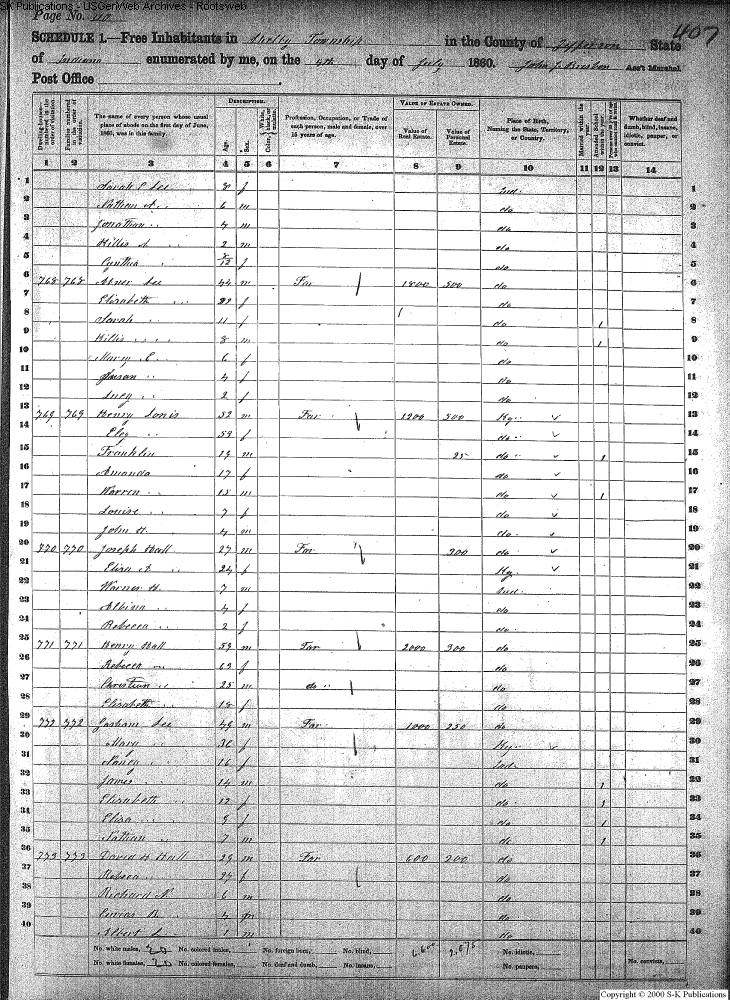 S-K Publications - USGenWeb Archives - Rootsweb
Page No. 40
407
SCHEDULE 1.—Free Inhabitants in Shelby Township in the County of Jefferson State
of Indiana enumerated by me, on the 9th day of July 1860. Ass't Marshal
Post Office
DESCRIPTION. VALUE OF ESTATE OWNED.
Dwelling-houses—numbered in the order of visitation. Families numbered in the order of visitation. The name of every person whose usual place of abode on the first day of June, 1860, was in this family. Age. Sex. Color, White, black, or mulatto. Profession, Occupation, or Trade of each person, male and female, over 15 years of age. Value of Real Estate. Value of Personal Estate. Place of Birth, Naming the State, Territory, or Country. Married within the Attended School Whether deaf and dumb, blind, insane, idiotic, pauper, or convict.
1 2 3 4 5 6 7 8 9 10 11 12 13 14
1 Sarah Lee 8 f Ind. 1
2 Nathan 6 m do 2
3 Jonathan 4 m do 3
4 Willis A 2 m do 4
5 Cynthia f do 5
6 768 768 Abner Lee 44 m Far 1800 500 do 6
7 Elizabeth f do 7
8 Sarah 11 f do 1 8
9 Willis 8 m do 1 9
10 Mary E. 6 f do 10
11 Susan 4 f do 11
12 Lucy 2 f do 12
13 769 769 Henry 52 m Far 1200 300 Ky 13
14 f do 14
15 Franklin 19 m 25 do 1 15
16 Amanda 17 f do 16
17 Warren 15 m do 1 17
18 Louisa 7 f do 18
19 John H. 4 m do 19
20 770 770 Joseph Hall 27 m Far 200 do 20
21 Eliza A 24 f Ky 21
22 Warner H. 7 m Ind. 22
23 Albina 4 f do 23
24 Rebecca 2 f do 24
25 771 771 Henry Hall 59 m Far 2000 300 do 25
26 Rebecca 63 f do 26
27 Christian 25 m do do 27
28 Elizabeth 18 f do 28
29 772 772 Lee 49 m Far 1000 250 do 29
30 Mary 36 f Ky 30
31 Nancy 16 f Ind 31
32 James 14 m do 1 32
33 Elizabeth 12 f do 1 33
34 Eliza 9 f do 1 34
35 Nathan 7 m do 1 35
36 773 773 David H Hall 29 m Far 600 200 do 36
37 Rebecca 27 f do 37
38 Richard N 6 m do 38
39 4 m do 39
40 Albert L 1 m do 40
No. white males, 20 No. colored males, No. foreign born, No. blind, 6,600 2,075 No. idiotic,
No. white females, 20 No. colored females, No. deaf and dumb, No. insane, No. paupers, No. convicts,
Copyright © 2000 S-K Publications